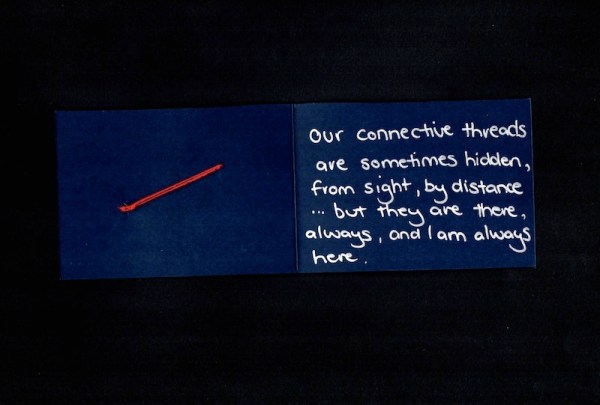 Our connective threads
are sometimes hidden,
from sight, by distance
... but they are there,
always, and I am always
here.